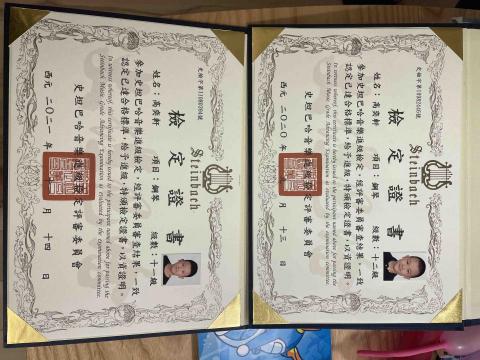 Steinbach
檢定證書
姓名：高奕軒 項目：鋼琴 級數：十二級
參加史坦巴哈音樂進級檢定，經評審委員審查結果，一致
認定已達合格標準，給予進級，特頒檢定證書，以資證明。
史坦巴哈音樂進級檢定評審委員會
西元二〇二〇年 月十三日
Steinbach
檢定證書
姓名：高奕軒 項目：鋼琴 級數：十一級
參加史坦巴哈音樂進級檢定，經評審委員審查結果，一致
認定已達合格標準，給予進級，特頒檢定證書，以資證明。
史坦巴哈音樂進級檢定評審委員會
西元二〇二一年 月十四日